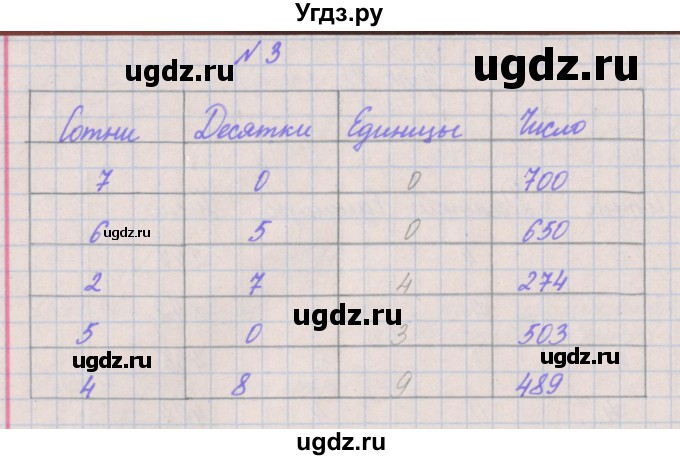 Угдз.ру
№ 3
ugdz.ru ugdz.ru
Сотни Десятки Единицы Число
7 0 0 700
6 ugdz.ru 5 0 650
2 7 4 274
ugdz.ru
5 0 3 503
ugdz.ru ugdz.ru
4 8 9 489
ugdz.ru